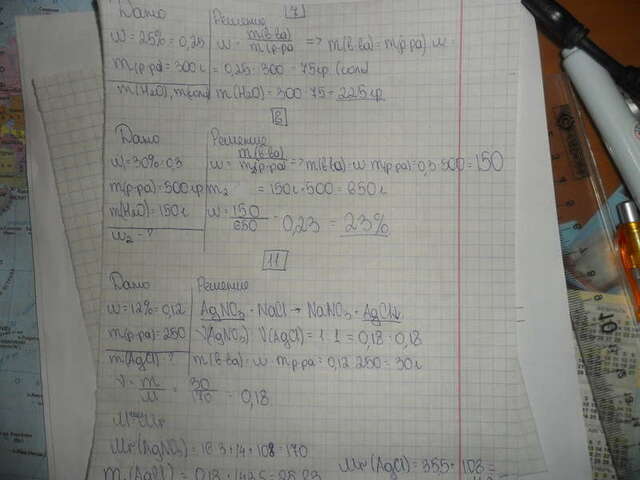 7
Дано
Решение
w = 25% = 0,25
w = m(в-ва) / m(р-ра) => m(в-ва) = m(р-ра) · w =
m(р-ра) = 300 г
= 0,25 · 300 = 75 гр (соли)
m(H2O), m соли
m(H2O) = 300 - 75 = 225 гр
8
Дано
Решение
w1 = 30% = 0,3
w = m(в-ва) / m(р-ра) => m(в-ва) = w · m(р-ра) = 0,3 · 500 = 150
m(р-ра) = 500 гр
m2 = 150 г + 500 = 650 г
m(H2O) = 150 г
w = 150 / 650 = 0,23 = 23%
w2 - ?
11
Дано
Решение
w = 12% = 0,12
AgNO3 + NaCl → NaNO3 + AgCl↓
m(р-ра) = 250
V(AgNO3) : V(AgCl) = 1 : 1 = 0,18 : 0,18
m(AgCl) - ?
m(в-ва) = w · m р-ра = 0,12 · 250 = 30 г
V = m / M = 30 / 170 = 0,18
Mr(AgNO3) = 16·3+14+108 = 170
Mr(AgCl) = 35,5 + 108 =